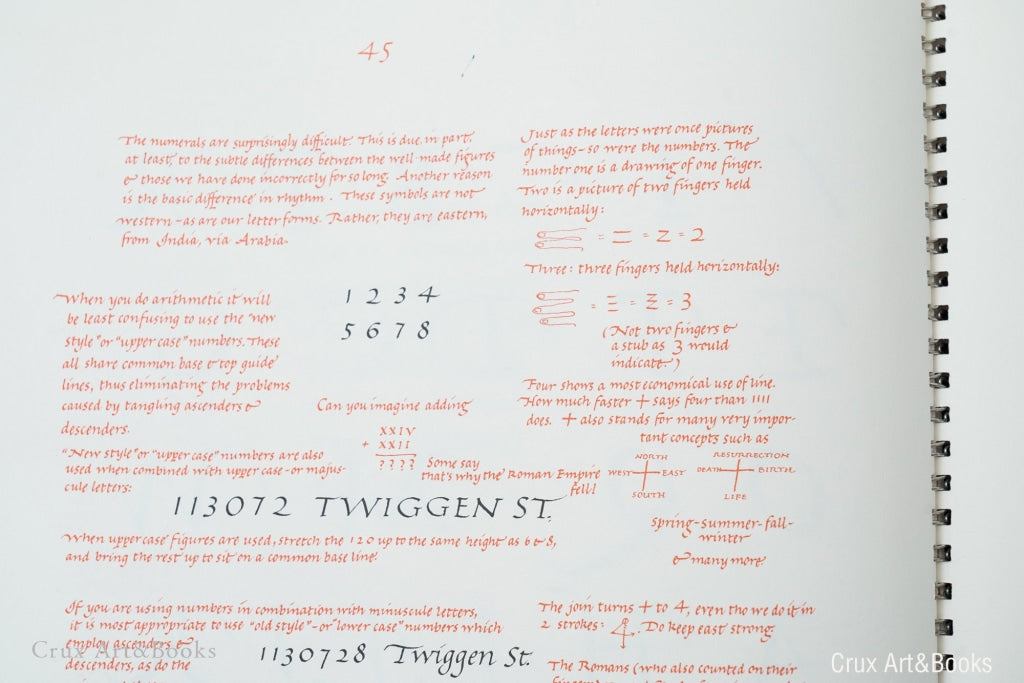 45
The numerals are surprisingly difficult. This is due, in part,
at least, to the subtle differences between the well-made figures
& those we have done incorrectly for so long. Another reason
is the basic difference in rhythm. These symbols are not
western – as are our letter forms. Rather, they are eastern,
from India, via Arabia.
When you do arithmetic it will
be least confusing to use the "new
style" or "upper case" numbers. These
all share common base & top guide
lines, thus eliminating the problems
caused by tangling ascenders &
descenders.
1 2 3 4
5 6 7 8
Can you imagine adding
XXIV
+ XXII
? ? ? ?
Some say
that's why the Roman Empire
fell!
"New style" or "upper case" numbers are also
used when combined with upper case – or majus-
cule letters:
113072 TWIGGEN ST.
When upper case figures are used, stretch the 1 2 0 up to the same height as 6 & 8,
and bring the rest up to sit on a common base line.
If you are using numbers in combination with minuscule letters,
it is most appropriate to use "old style" – or "lower case" numbers which
employ ascenders &
descenders, as do the
1130728 Twiggen St.
Just as the letters were once pictures
of things – so were the numbers. The
number one is a drawing of one finger.
Two is a picture of two fingers held
horizontally:
= = = Z = 2
Three: three fingers held horizontally:
= Ξ = Ξ = 3
(Not two fingers &
a stub as 3 would
indicate.)
Four shows a most economical use of line.
How much faster + says four than 1111
does. + also stands for many very impor-
tant concepts such as
NORTH
WEST EAST
SOUTH
RESURRECTION
DEATH BIRTH
LIFE
spring-summer-fall-
winter
& many more.
The join turns + to 4, even tho we do it in
2 strokes: 4. Do keep east strong.
The Romans (who also counted on their
Crux Art&Books
Crux Art&Books